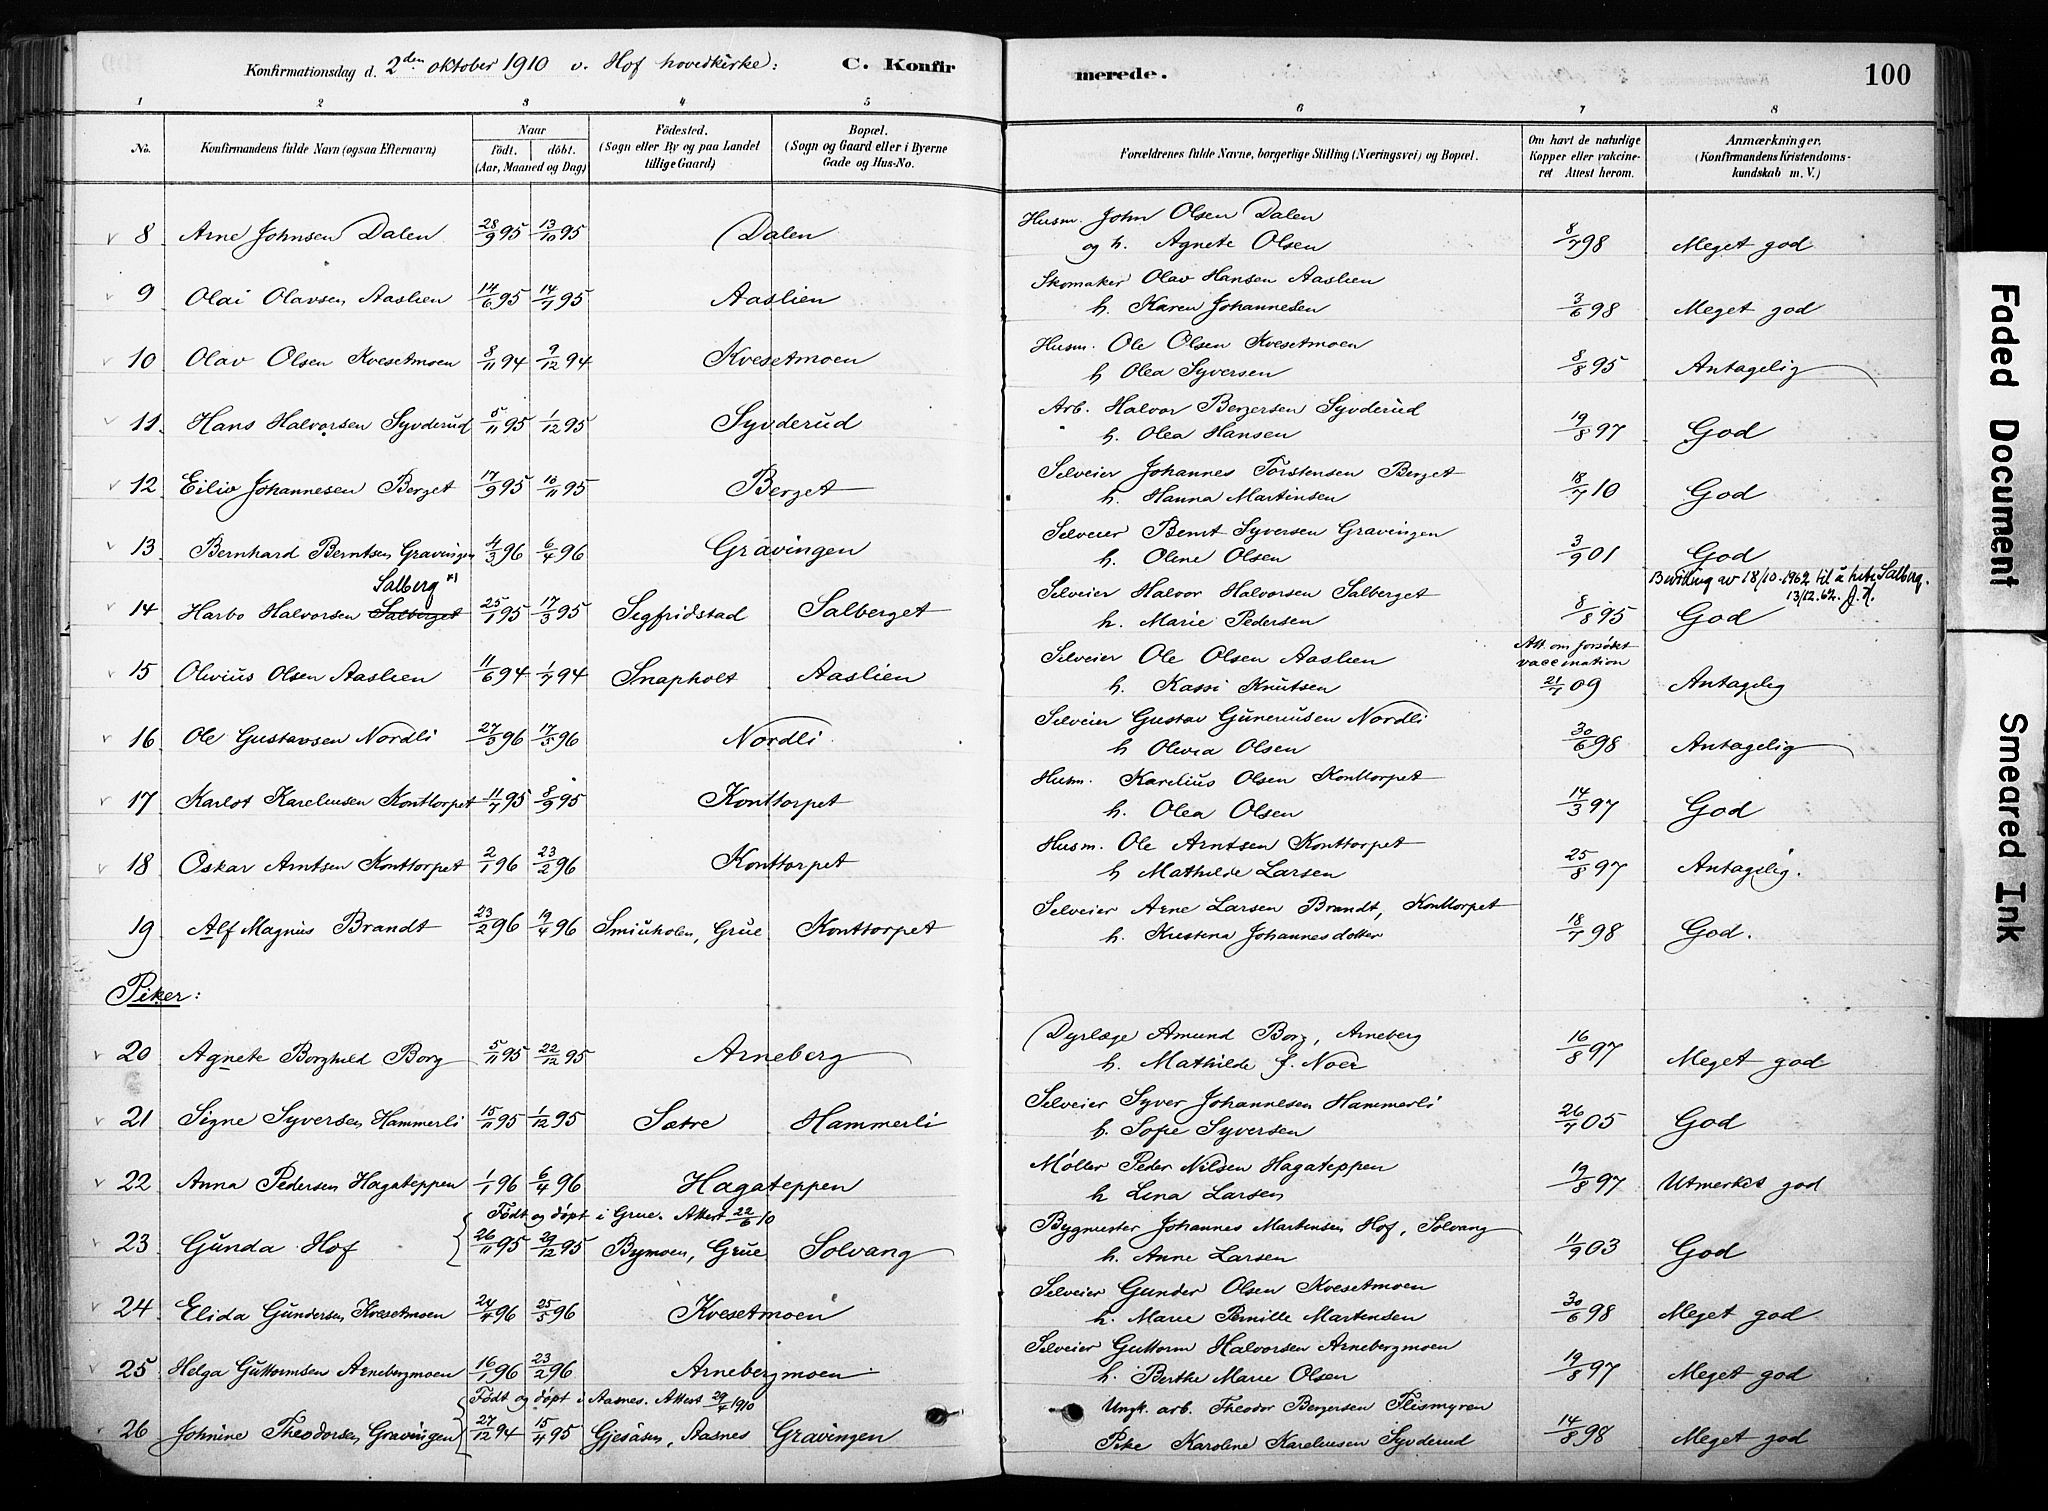 Konfirmationsdag d. 2den oktober 1910 v. Hof hovedkirke: C. Konfirmerede. 100
1 2 3 4 5 6 7 8
No. Konfirmandens fulde Navn (ogsaa Efternavn) Naar født. døbt. (Aar, Maaned og Dag) Fødested. (Sogn eller By og paa Landet tillige Gaard) Bopæl. (Sogn og Gaard eller i Byerne Gade og Hus-No. Forældrenes fulde Navne, borgerlige Stilling (Næringsvei) og Bopæl. Om havt de naturlige Kopper eller vakcineret Attest herom. Anmærkninger. (Konfirmandens Kristendomskundskab m. V.)
8 Arne Johnsen Dalen 28/9 95 13/10 95 Dalen Husm. John Olsen Dalen
og h. Agnete Olsen 8/7 98 Meget god
9 Olai Olavsen Aaslien 14/6 95 14/7 95 Aaslien Skomaker Olav Hansen Aaslien
h. Karen Johannesen 3/6 98 Meget god
10 Olav Olsen Kvesetmoen 8/11 94 9/12 94 Kvesetmoen Husm. Ole Olsen Kvesetmoen
h Olea Syversen 8/8 95 Antagelig
11. Hans Halvorsen Syvderud 5/11 95 1/12 95 Syvderud Arb. Halvor Bergersen Syvderud
h. Olea Hansen 19/8 97 God
12 Eiliv Johannesen Berget 17/9 95 10/11 95 Berget Selveier Johannes Torstensen Berget
h. Hanna Martinsen 18/7 10 God
13 Bernhard Berntsen Gravingen 4/3 96 6/4 96 Gravingen Selveier Bernt Syversen Gravingen
h. Olene Olsen 3/9 01 God
Salberg *) Bevilling av 18/10-1962 til å hete Salberg. 13/12.62.
14 Harbo Halvorsen Salberget 25/1 95 17/3 95 Segfridstad Salberget Selveier Halvor Halvorsen Salberget
h. Marie Pedersen 8/8 95 God
15 Olivius Olsen Aaslien 11/6 94 1/7 94 Snapholt Aaslien Selveier Ole Olsen Aaslien Att. om forsøket vaccination
h. Kassi Knutsen 21/1 09 Antagelig
16 Ole Gustavsen Nordli 27/3 96 17/5 96 Nordli Selveier Gustav Guneriusen Nordli
h Olivia Olsen 30/6 98 Antagelig
17 Karlot Kareliusen Konttorpet 11/7 95 8/9 95 Konttorpet Husm. Karelius Olsen Konttorpet
h. Olea Olsen 14/3 97 God
18 Oskar Arntsen Konttorpet 2/1 96 23/2 96 Konttorpet Husm. Ole Arntsen Konttorpet
h Mathilde Larsen 25/8 97 Antagelig.
19 Alf Magnus Brandt 23/2 96 19/4 96 Smiuholen, Grue Konttorpet Selveier Arne Larsen Brandt, Konttorpet
h. Kristena Johannesdotter 18/7 98 God.
Piker:
20 Agnete Borghild Borg 5/11 95 22/12 95 Arneberg Dyrlæge Amund Borg, Arneberg
h. Mathilde f. Noer 16/8 97 Meget god
21 Signe Syversen Hammerli 15/11 95 1/12 95 Sætre Hammerli Selveier Syver Johannesen Hammerli
h. Sofie Syversen 26/7 05 God
22 Anna Pedersen Hagateppen 1/1 96 6/4 96 Hagateppen Møller Peder Nilsen Hagateppen
h Lina Larsen 19/8 97 Utmerket god
Født og døpt i Grue. Attest 22/6 10
23 Gunda Hof 26/11 95 29/12 95 Bymoen, Grue Solvang Bygmester Johannes Martinsen Hof, Solvang
h. Anne Larsen 11/9 03 God
24 Elida Gundersen Kvesetmoen 24/4 96 25/5 96 Kvesetmoen Selveier Gunder Olsen Kvesetmoen
h. Marie Pernille Martinsen 30/6 98 Meget god
25 Helga Guttormsen Arnebergmoen 16/1 96 23/2 96 Arnebergmoen Selveier Guttorm Halvorsen Arnebergmoen
h. Berthe Marie Olsen 19/8 97 Meget god
Født og døpt i Aasnes. Attest 29/4 1910
26 Johnine Theodorsen Gravingen 27/12 94 15/4 95 Gjesåsen, Aasnes Gravingen Ungk. arb. Theodor Bergersen Flismyren
Pike Karoline Kareliusen Syvderud 14/8 98 Meget god
Faded Document
Smeared Ink